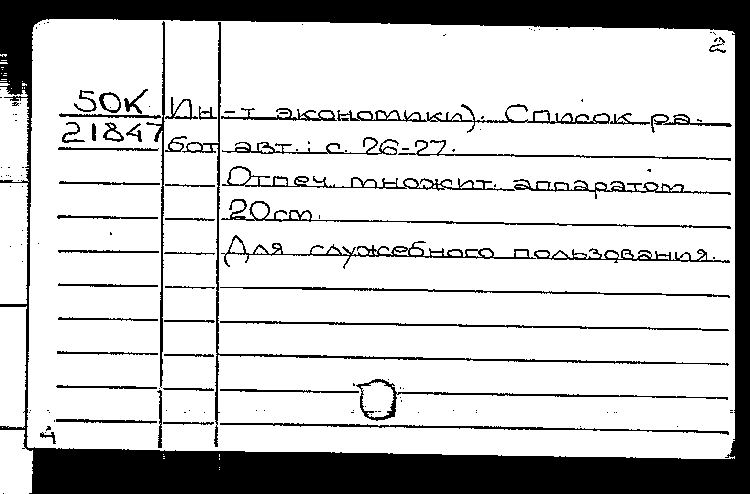 2
50К Ин-т экономики). Список ра-
21847 бот авт.: с. 26-27.
Отпеч. множит. аппаратом
20см.
Для служебного пользования.
4